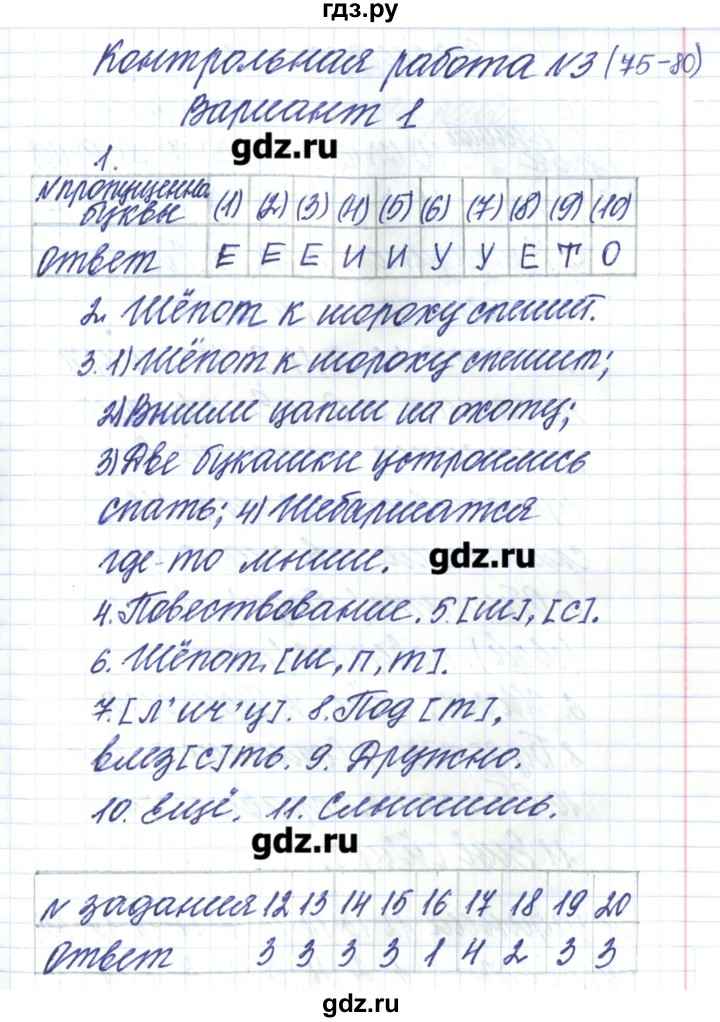 гдз.ру
Контрольная работа №3 (75-80)
Вариант 1
gdz.ru
1.
№ пропущенна буквы (1) (2) (3) (4) (5) (6) (7) (8) (9) (10)
ответ Е Е Е И И У У Е Т О
2. Шёпот к шороху спешит.
3. 1) Шёпот к шороху спешит;
2) Вышли цапли на охоту;
3) Две букашки устроились
спать; 4) Шебаршатся
где-то мыши.
gdz.ru
4. Повествование. 5. [ш], [с].
6. Шёпот. [ш, п, т].
7. [л'ич'у]. 8. Под [т],
влез[с]ть. 9. Дружно.
10. Ещё. 11. Слышишь.
gdz.ru
№ задания 12 13 14 15 16 17 18 19 20
ответ 3 3 3 3 1 4 2 3 3
gdz.ru